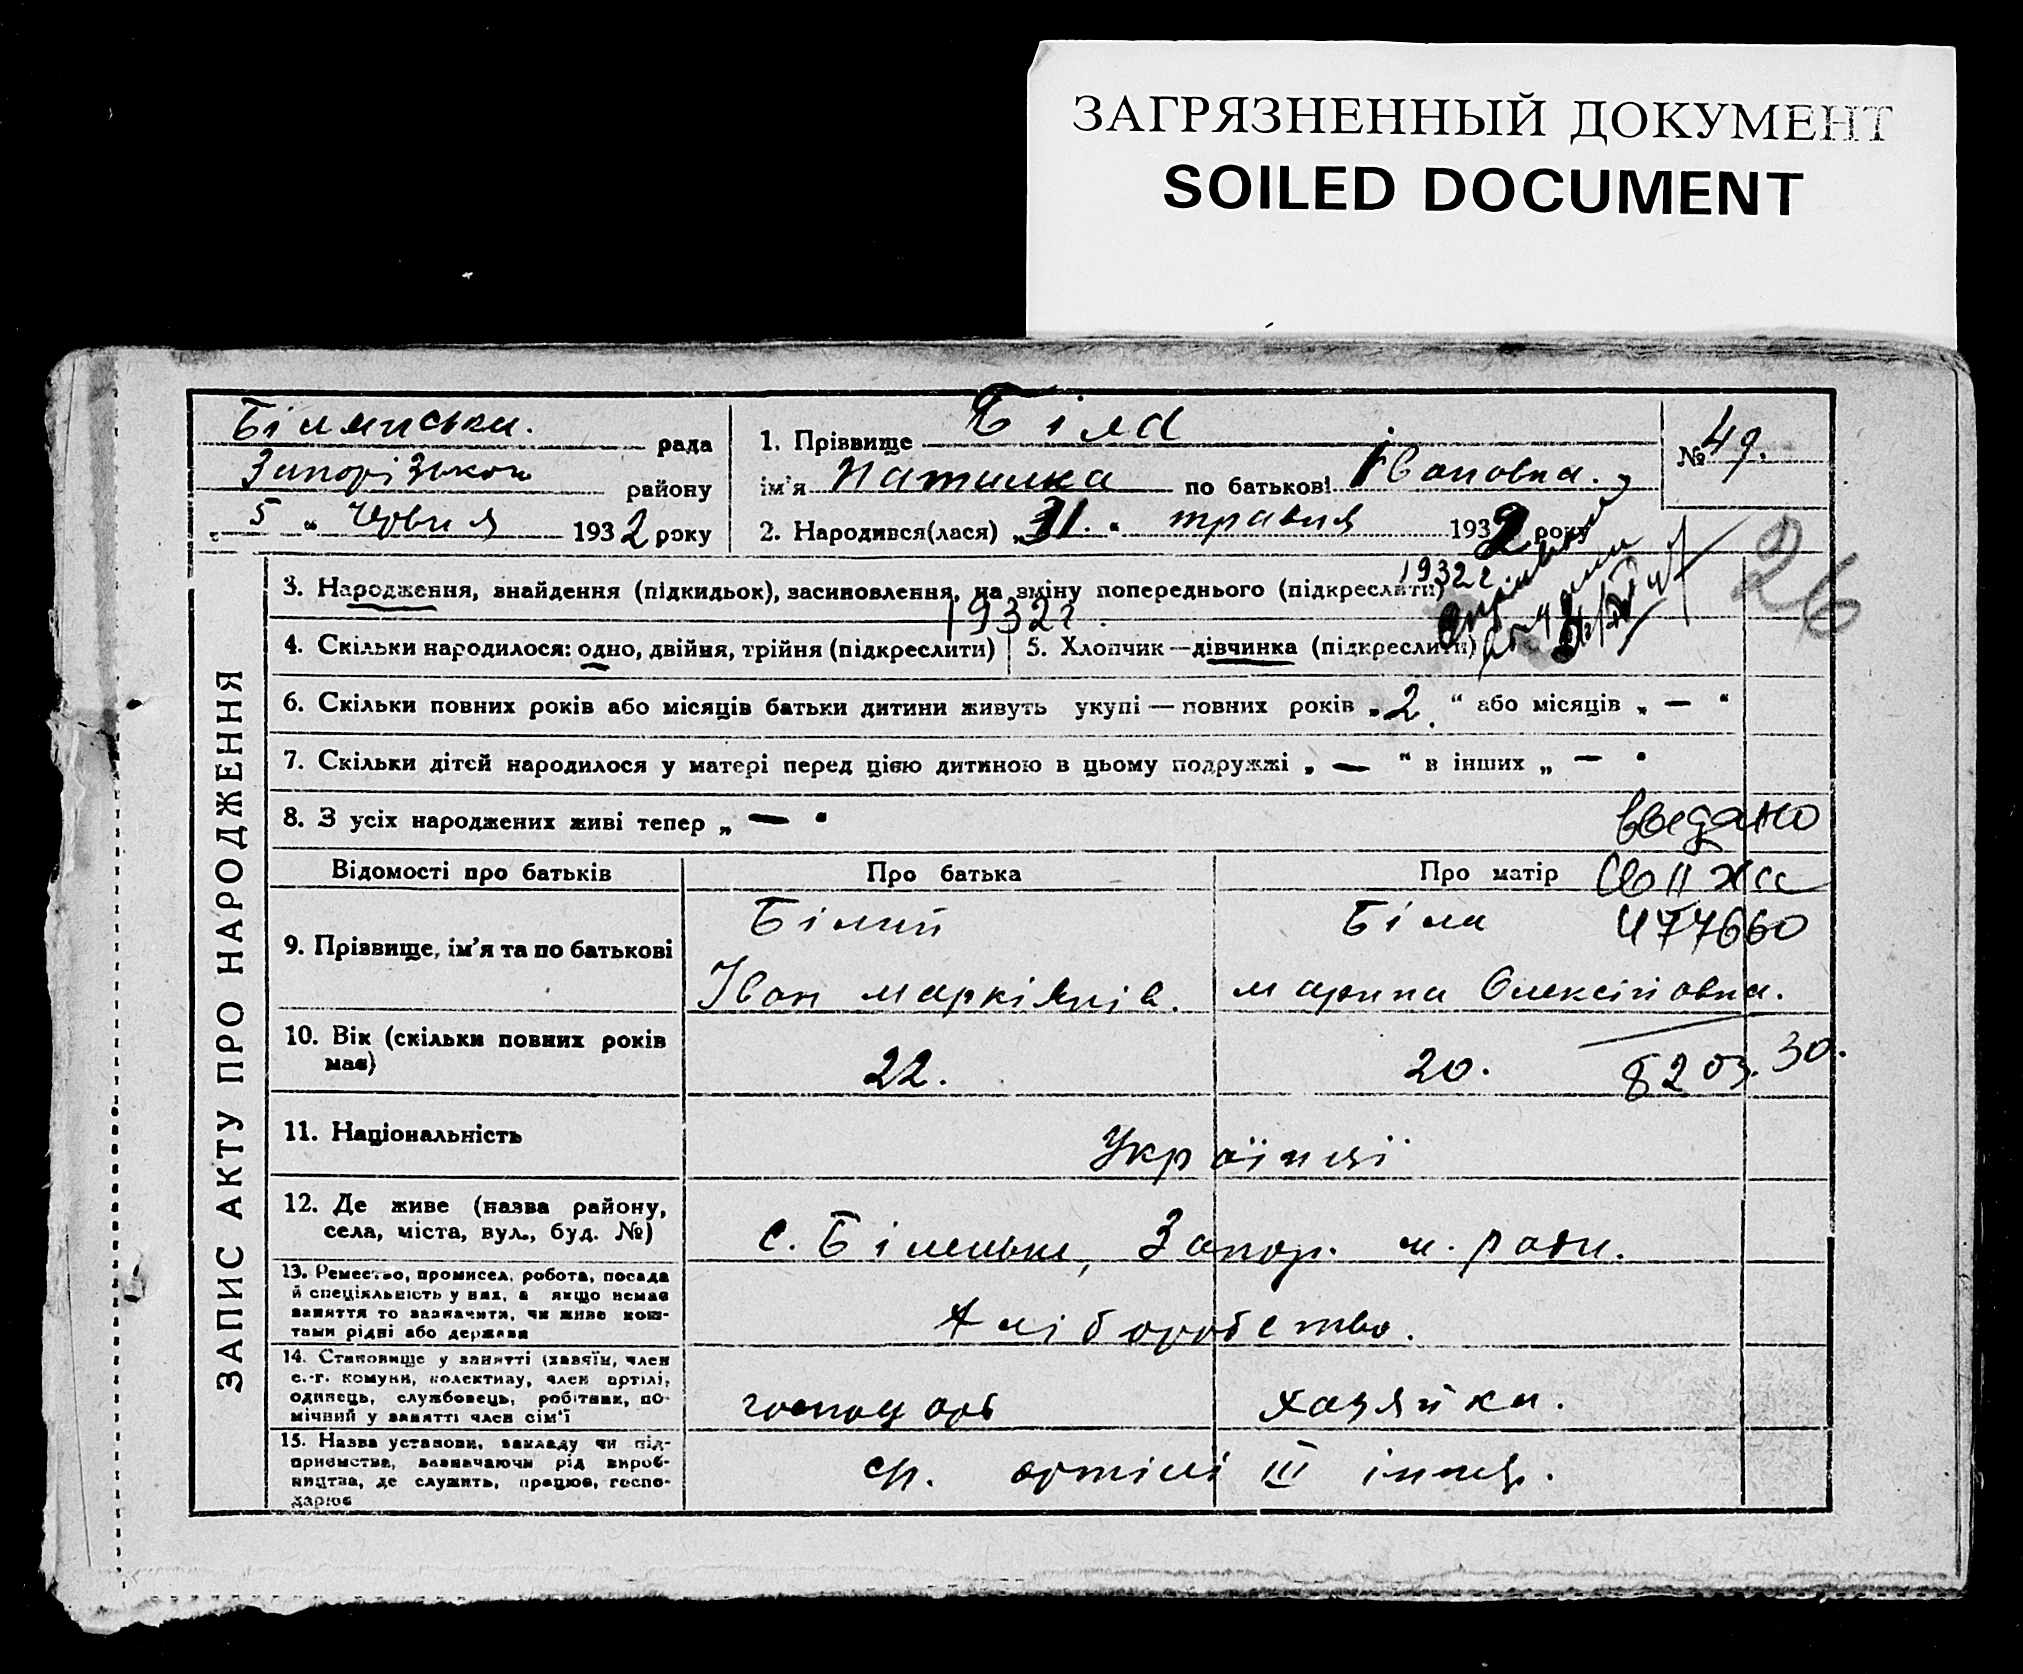 ЗАГРЯЗНЕННЫЙ ДОКУМЕНТ
SOILED DOCUMENT
рада
району
„ 5 " червня 1932 року
1. Прізвище Біла
ім'я Наталка по батькові Івановна.
2. Народився(лася) „31." травня 1932 року
№ 49.
26
ЗАПИС АКТУ ПРО НАРОДЖЕННЯ
1932 г
3. Народження, знайдення (підкидьок), засиновлення, на зміну попереднього (підкреслити)
1932 г.
4. Скільки народилося: одно, двійня, трійня (підкреслити)
5. Хлопчик — дівчинка (підкреслити)
6. Скільки повних років або місяців батьки дитини живуть укупі — повних років „2." або місяців „ — "
7. Скільки дітей народилося у матері перед цією дитиною в цьому подружжі „ — " в інших „ — "
8. З усіх народжених живі тепер „ — "
Відомості про батьків
Про батька
Про матір
9. Прізвище, ім'я та по батькові
Білий
Іван Маркіянів.
Біла
Марина Олексійовна.
477660
10. Вік (скільки повних років має)
22.
20.
30.
11. Національність
Українці
12. Де живе (назва району,
села, міста, вул., буд. №)
с. Біленьке, Запор. м. ради.
13. Ремество, промисел, робота, посада
й спеціяльність у них, а якщо немає
заняття то зазначити, чи живе кош-
тами рідні або держави
Хліборобство.
14. Становище у занятті (хазяїн, член
с.-г. комуни, колективу, член артілі,
одинець, службовець, робітник, по-
мічний у занятті член сім'ї
господарь
хазяйка.
15. Назва установи, закладу чи під-
приємства, зазначаючи рід вироб-
ництва, де служить, працює, госпо-
дарює
артілі III інтер.